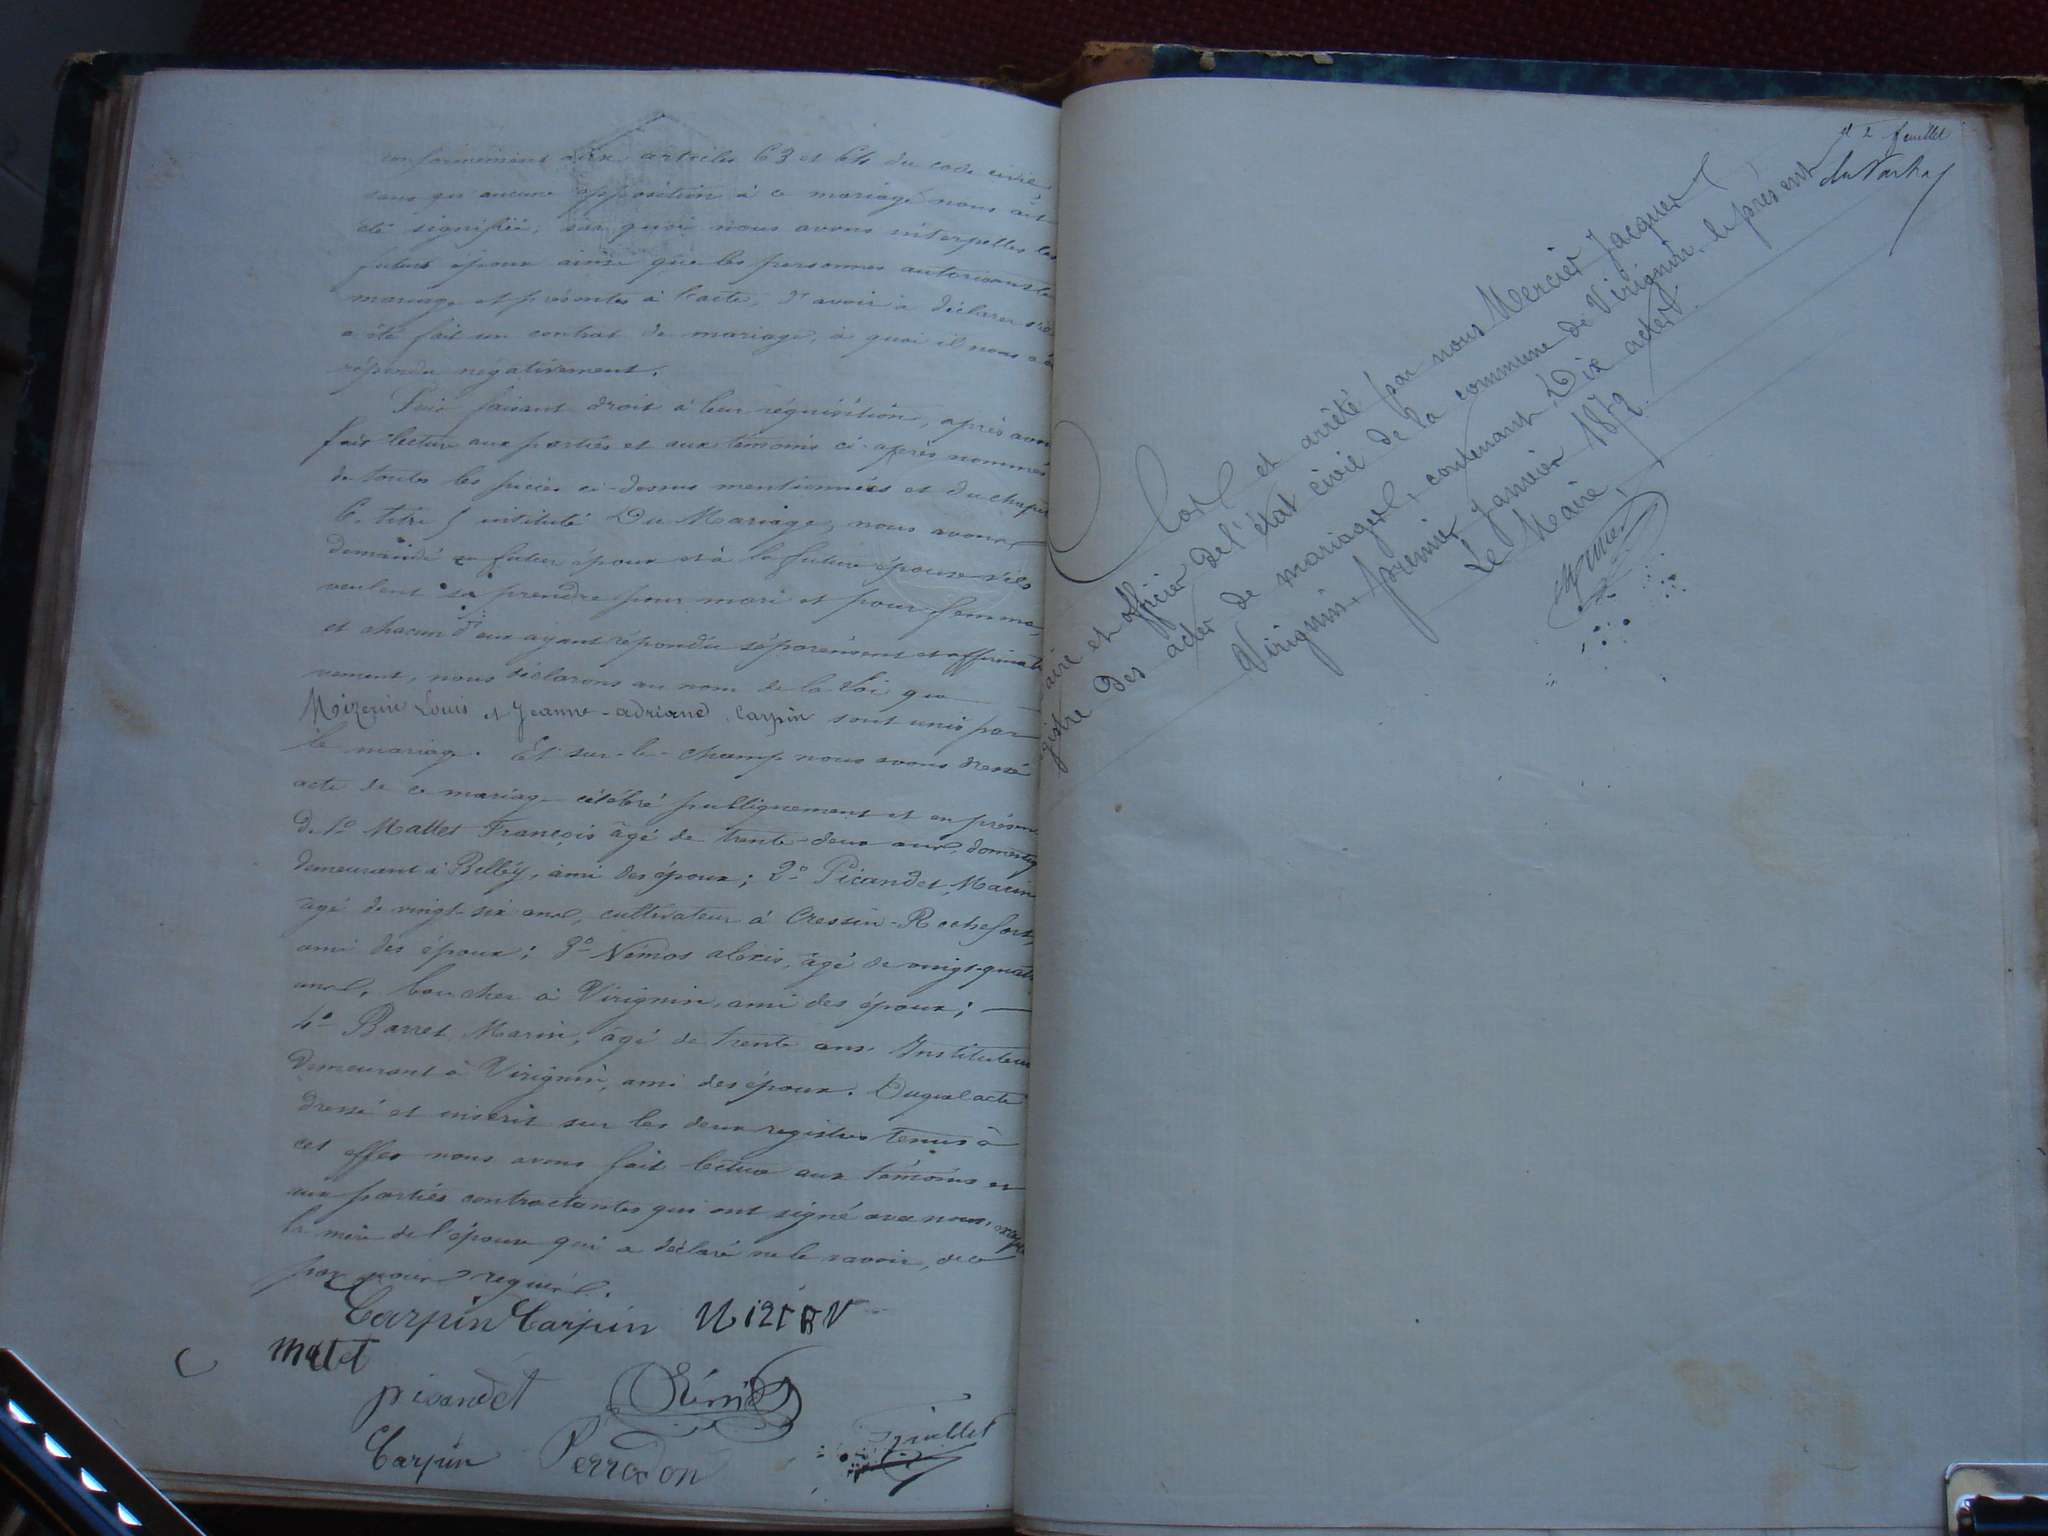 conformément aux articles 63 et 64 du code civil,
sans qu'aucune opposition à ce mariage nous ait
été signifiée, sur quoi nous avons interpellés les
futurs époux ainsi que les personnes autorisant le
mariage et présentes à l'acte, d'avoir à déclarer s'il
a été fait un contrat de mariage, à quoi il nous a été
répondu négativement.
Puis faisant droit à leur réquisition, après avoir
fait lecture aux parties et aux témoins ci-après nommés
de toutes les pièces ci-dessus mentionnées et du chapitre
6. titre 5 intitulé Du Mariage, nous avons
demandé au futur époux et à la future épouse s'ils
veulent se prendre pour mari et pour femme,
et chacun d'eux ayant répondu séparément et affirmati
vement, nous déclarons au nom de la loi que
Moizerin Louis et Jeanne-adriane Carpin sont unis par
le mariage. Et sur-le-champ nous avons dressé
acte de ce mariage célébré publiquement et en présence
de 1° Mattet François âgé de trente-deux ans, domestiq
demeurant à Belley, ami des époux; 2° Picandet Marin
âgé de vingt-six ans, cultivateur à Cressin-Rochefort,
ami des époux; 3° Némos alexis, âgé de vingt-quatre
ans, boucher à Virignin, ami des époux;
4° Barret Marin, âgé de trente ans Instituteur
demeurant à Virignin, ami des époux. Duquel acte
dressé et inscrit sur les deux registres tenus à
cet effet nous avons fait lecture aux témoins et
aux parties contractantes qui ont signé avec nous, excepté
la mère de l'époux qui a déclaré ne le savoir, de ce
par nous requis.
Carpin Carpin
matet
picandet
Carpin Perrodon
et 2 feuillet
Clos et arrêté par nous Mercier Jacques
aire et officier de l'état civil de la commune de Virignin, le présent
gistre des actes de mariages, contenant Dix actes.
Virignin, premier Janvier 1872.
Le Maire,
Mercier